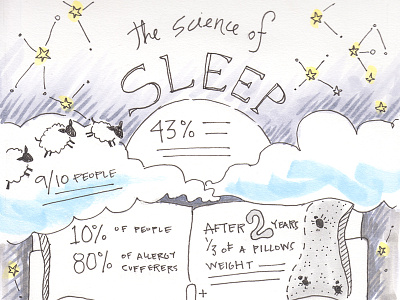 the science of
SLEEP
43%
9/10 PEOPLE
10% OF PEOPLE
80% OF ALLERGY
CUFFERERS
AFTER 2 YEARS
1/3 OF A PILLOWS
WEIGHT
0+